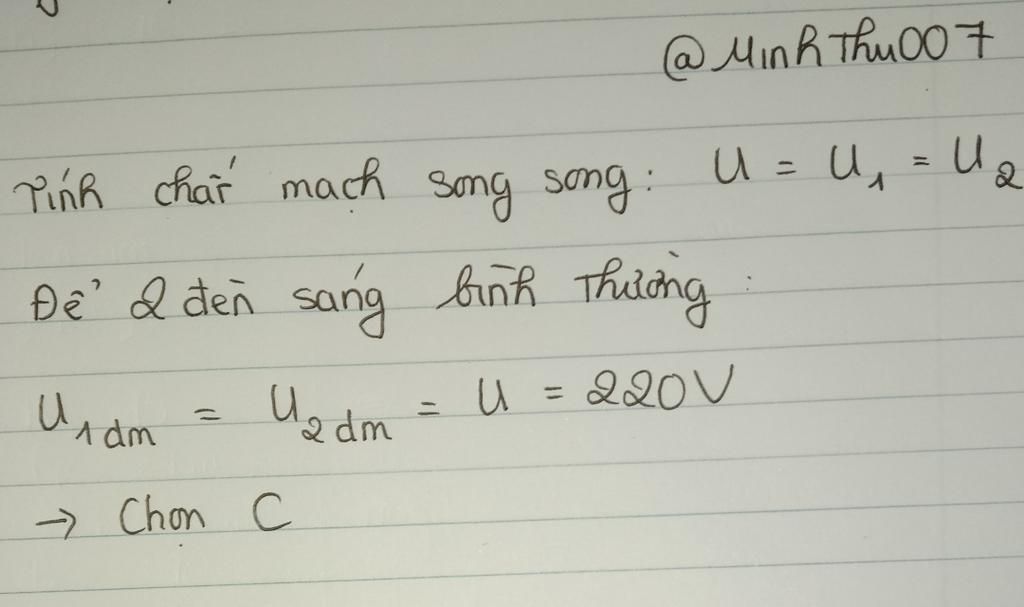 @MinhThu007
Tính chất mạch song song: U = U₁ = U₂
Để 2 đèn sáng bình thường:
U₁đm = U₂đm = U = 220V
→ Chọn C